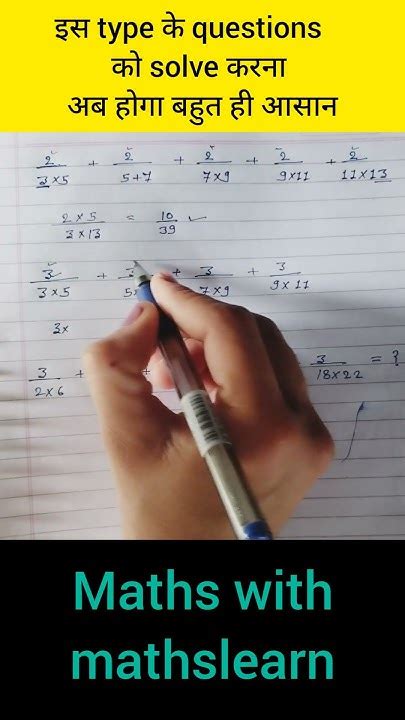 इस type के questions
को solve करना
अब होगा बहुत ही आसान
2/3×5 + 2/5+7 + 2/7×9 + 2/9×11 + 2/11×13
2×5/3×13 = 10/39
3/3×5 + 3/5× + 3/7×9 + 3/9×11
3×
3/2×6 + + 3/18×22 = ?
Maths with
mathslearn